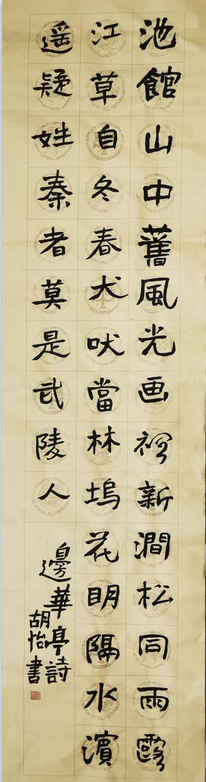 池館山中舊風光画裡新澗松同雨露
江草自冬春犬吠當林塢花明隔水濱
遥疑姓秦者莫是武陵人
邊華亭詩
胡怡書